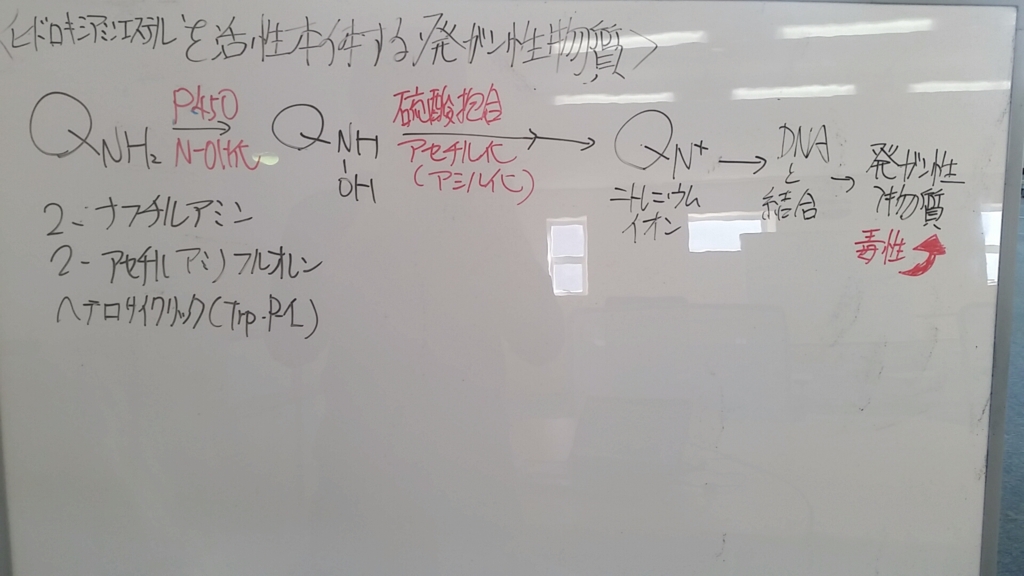 〈ヒドロキシアミンエステルを活性本体する発ガン性物質〉
Q NH₂
P450
N-OH化
Q NH
OH
硫酸抱合
アセチル化
(アシル化)
Q N⁺
ニトレニウム
イオン
DNA
と
結合
発ガン性
物質
毒性
2-ナフチルアミン
2-アセチルアミノフルオレン
ヘテロサイクリック(Trp-P1)